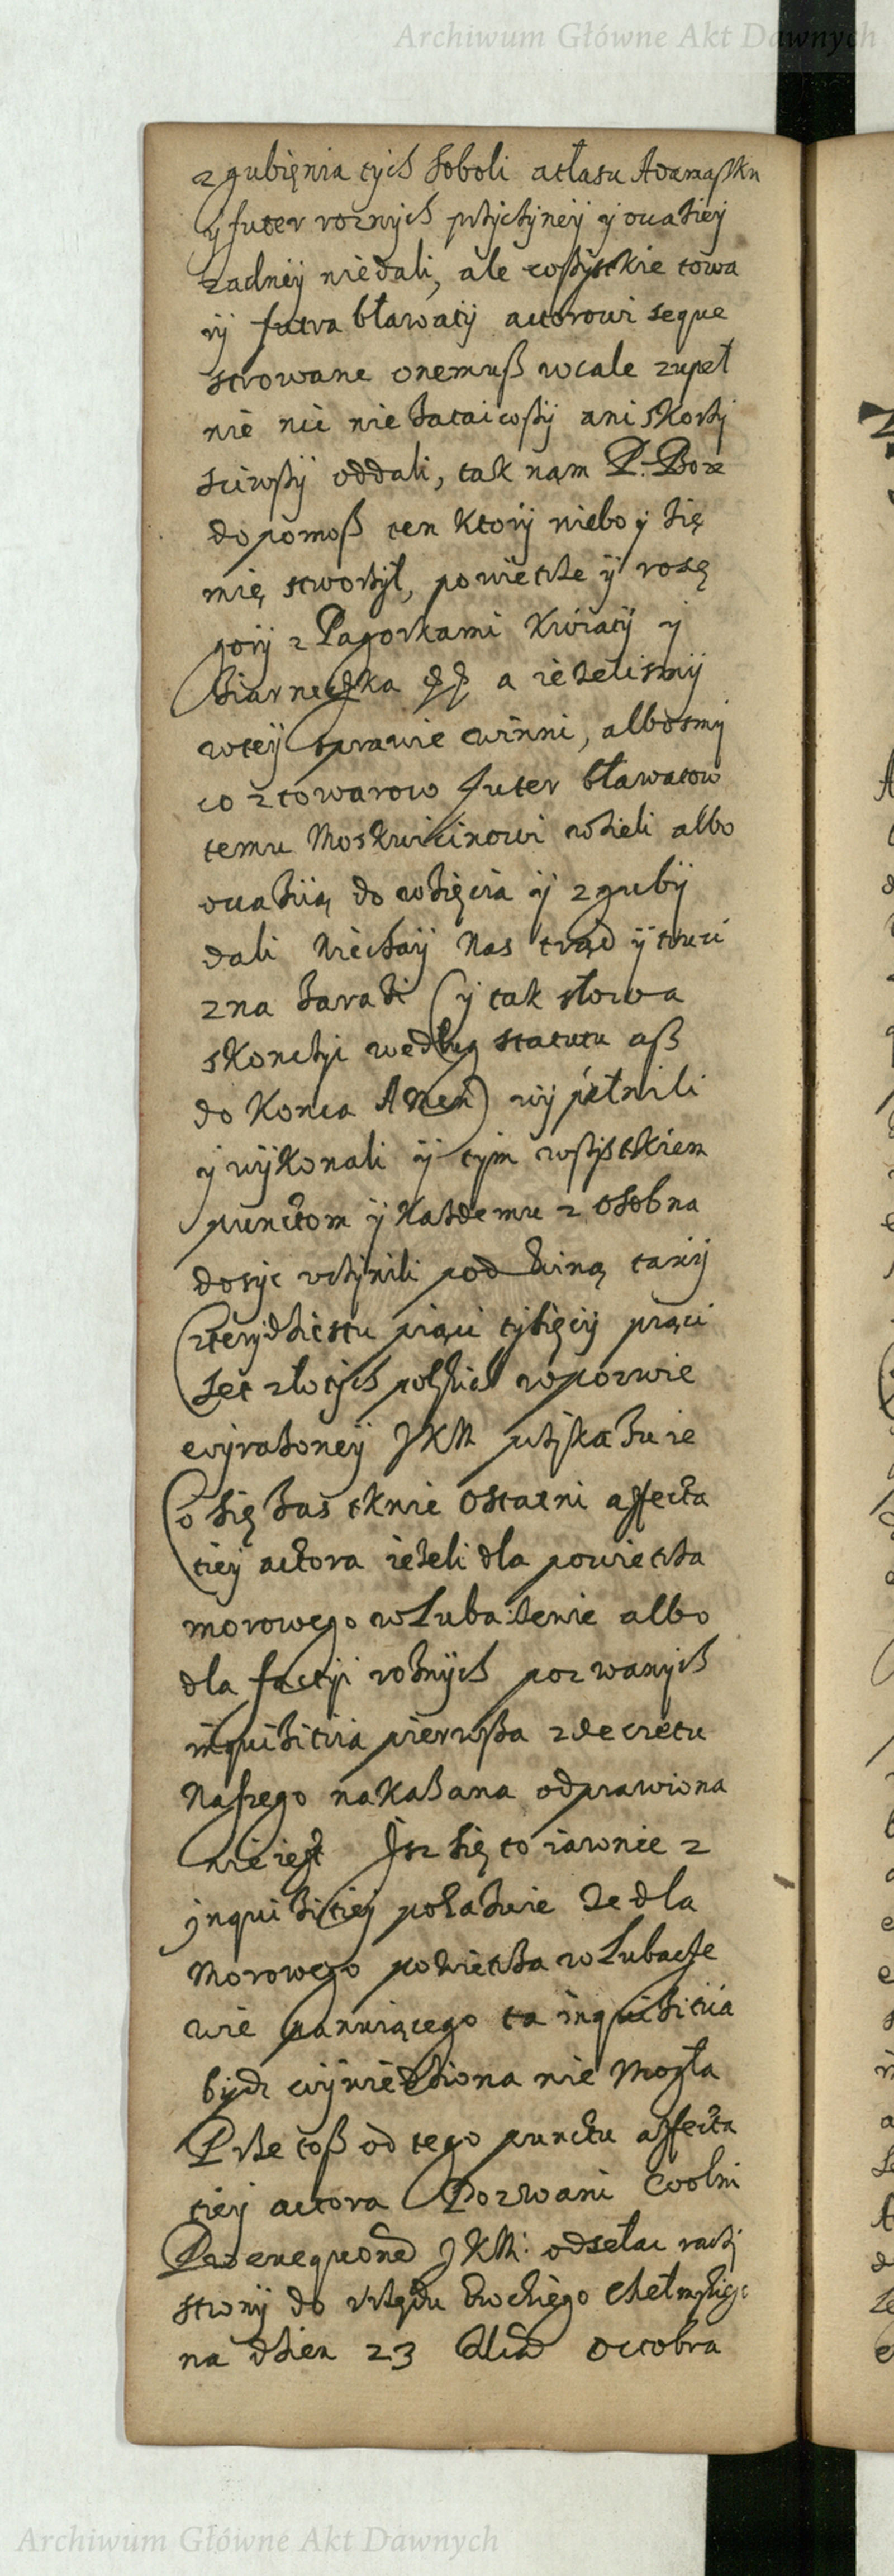 Archiwum Główne Akt Dawnych
zgubięnia tych Soboli atłasu Adamaszku
y futer roznych przyczyney y ocaziey
zadney niedali, ale wszystkie towa
ry futra bławaty actorowi seque
strowane onemuß wcale zupeł
nie nic nie zataiwszy ani skorzy
sciwszy oddali, tak nąm P. Boże
dopomoß ten ktory niebo y Zię
mię stworzył, powietrze y rosę
gory z Pagorkami Kwiaty y
Ziarneczka a iezelismy
wtey sprawie winni, albosmy
co z towarow futer bławatow
temu Moskwicinowi wzieli albo
ocaziią do wzięcia y zguby
dali niechay nas trąd y
zna zarazi (y tak słowa
skonczyc według statutu aß
do Konca Amen) wypełnili
y wykonali y tym wszystkiem
punctom y Kazdemu z osobna
dosyc vczynili pod winą
czterydziestu piąci tysięcy piąci
set złotych polskich w pozwie
wyrazoney JKM przyskazuie
Co się zas tknie ostatni affecta
tiey actora iezeli dla powietrza
morowego w Lubaczenie albo
dla factyi roznych pozwanych
inquizitia pierwsza z decretu
Naszego nakazana odprawiona
nie iest Isz się to iawnie z
inquizitiey pokazuie ze dla
Morowego powietrza w Lubacze
wie panuiącego ta inquizitiia
bydz wywiedziona nie mogła
Prze toß od tego punctu affecta
tiey actora Pozwani Wolni
JKM: odsełac raczy
strony do Vrzędu Chełmskiego
na dzien 23 Octobra
Archiwum Główne Akt Dawnych